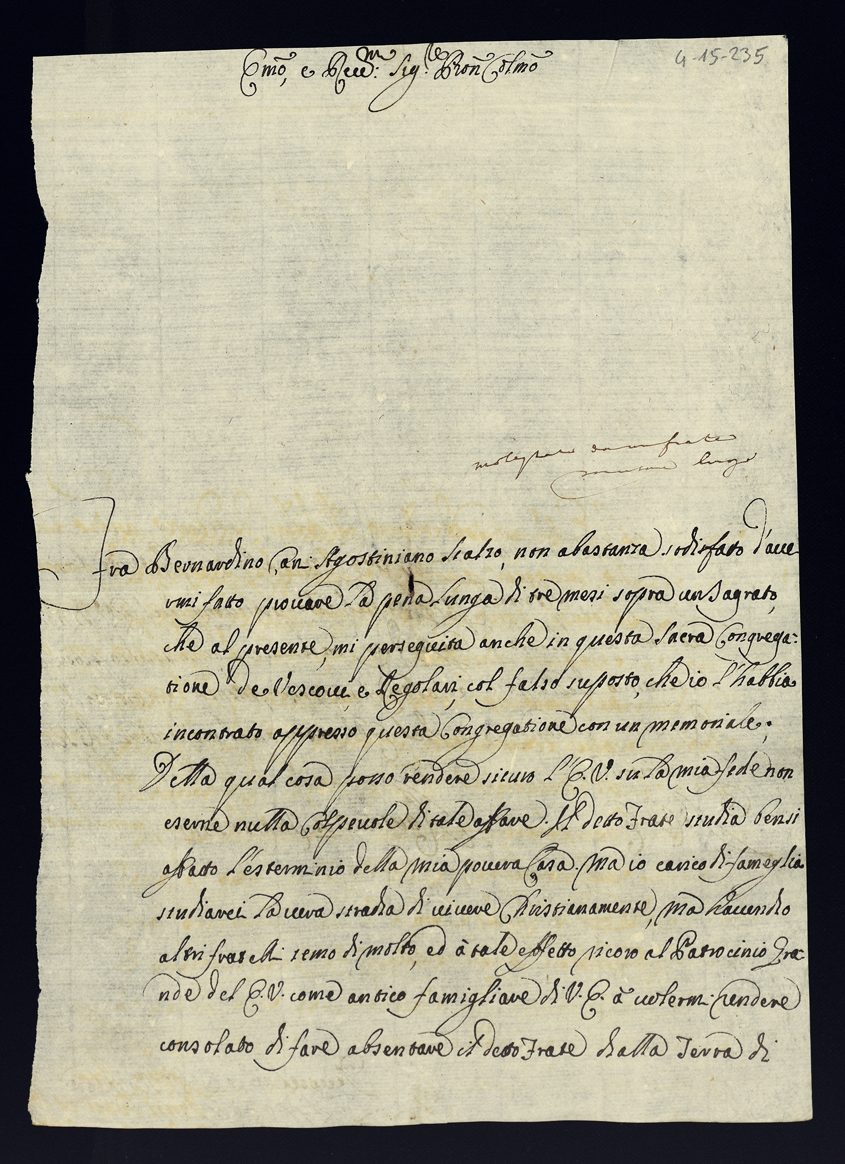 4-15-235
Emō, e Reu.m: Sig.re Pron Colmō
molestato da un frate
lungo
Fra Bernardino Cani Agostiniano scalzo, non abastanza sodisfatto d'aue
rmi fatto prouare la pena lunga di tre mesi sopra un sagrato,
che al presente, mi perseguita anche in questa sacra Congrega:
tione de Vescoui, e Regolari, col falso suposto, che io l'habbia
incontrato appresso questa Congregatione con un memoriale.
Della qual cosa posso rendere sicuro l'E. V. su la mia fede non
eserne nulla Colpeuole di tale affare. Il detto Frate studia bensi
affatto l'esterminio della mia pouera Casa. Ma io carico di fameglia
studiarei la uera strada di uiuere Christianamente, ma hauendo
altri fratelli temo di molto, ed à tale effetto ricoro al Patrocinio Gra-
nde del E. V. come antico famigliare di V. E. à uolermi rendere
consolato di fare absentare il detto Frate dalla Terra di